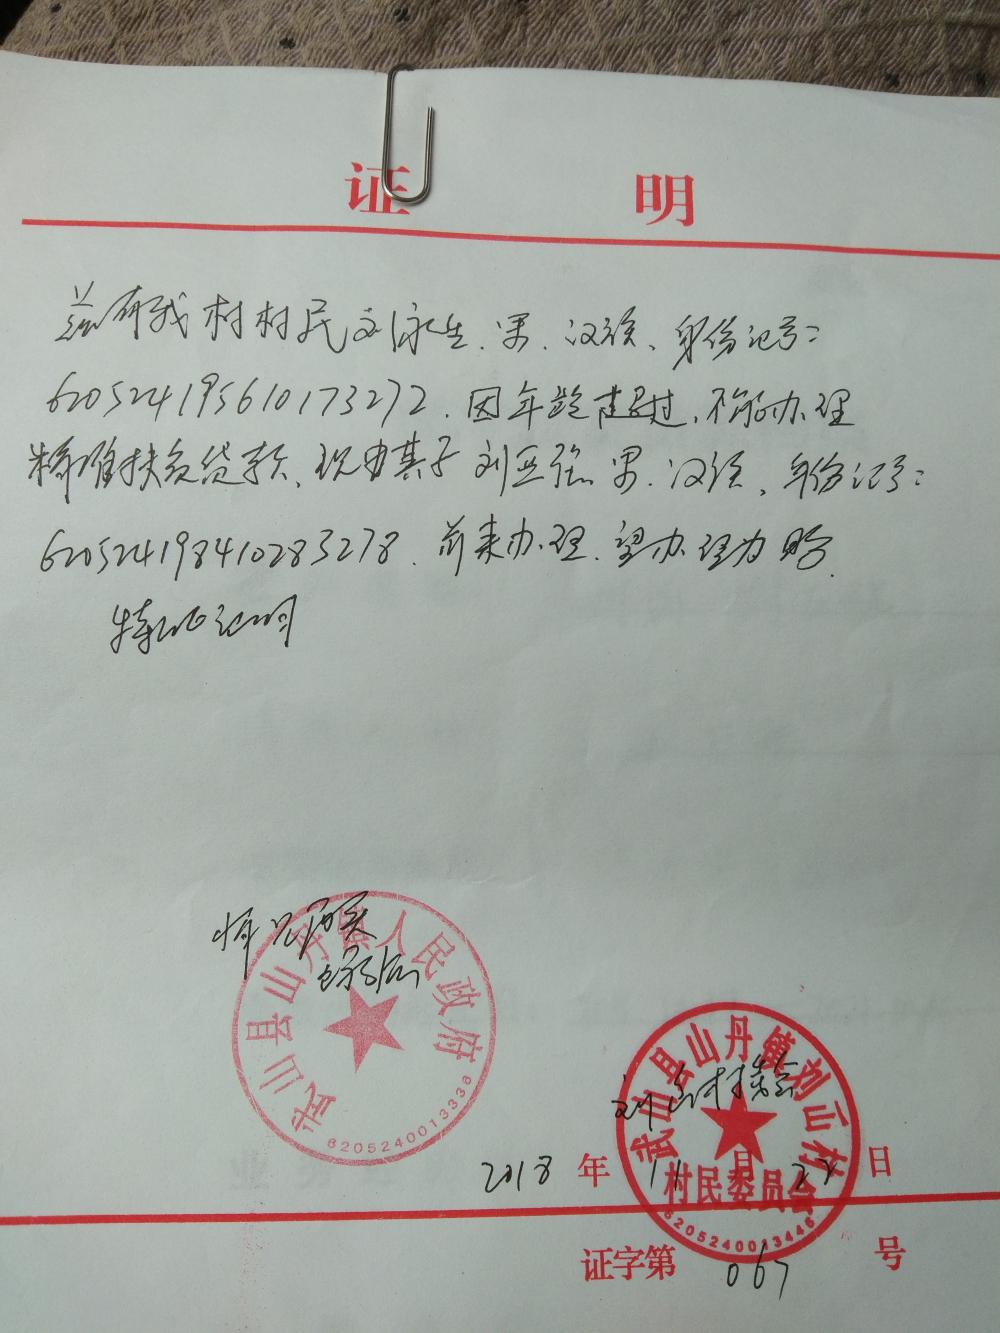 证 明
兹有我村村民刘泳生、男、汉族、身份证号：
620524195610173272．因年龄超过，不能办理
精准扶贫贷款、现由其子刘亚强 男、汉族、身份证号：
620524198410283278．前来办理．望办理为盼．
特此证明
情况属实
武山县山丹镇人民政府
6205240013336
刘山村村委会
武山县山丹镇刘山村
村民委员会
6205240013446
2018 年 11 月 22 日
证字第 067 号